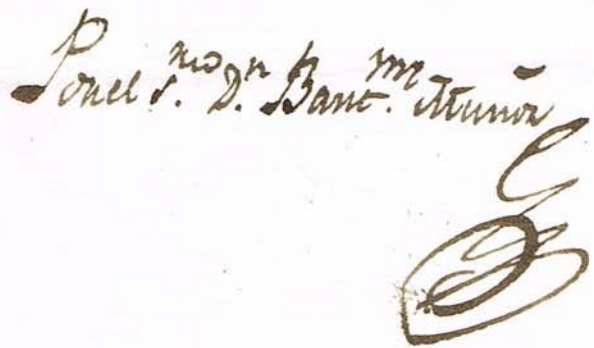 Por el S.rio D.n Bart.me Muñoz